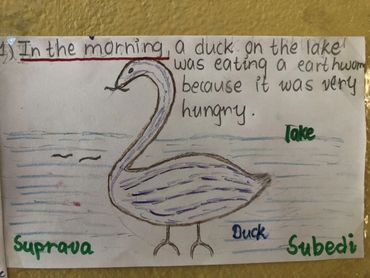 1) In the morning, a duck on the lake
was eating a earthwom
because it was very
hungry.
lake
Duck
Suprava
Subedi